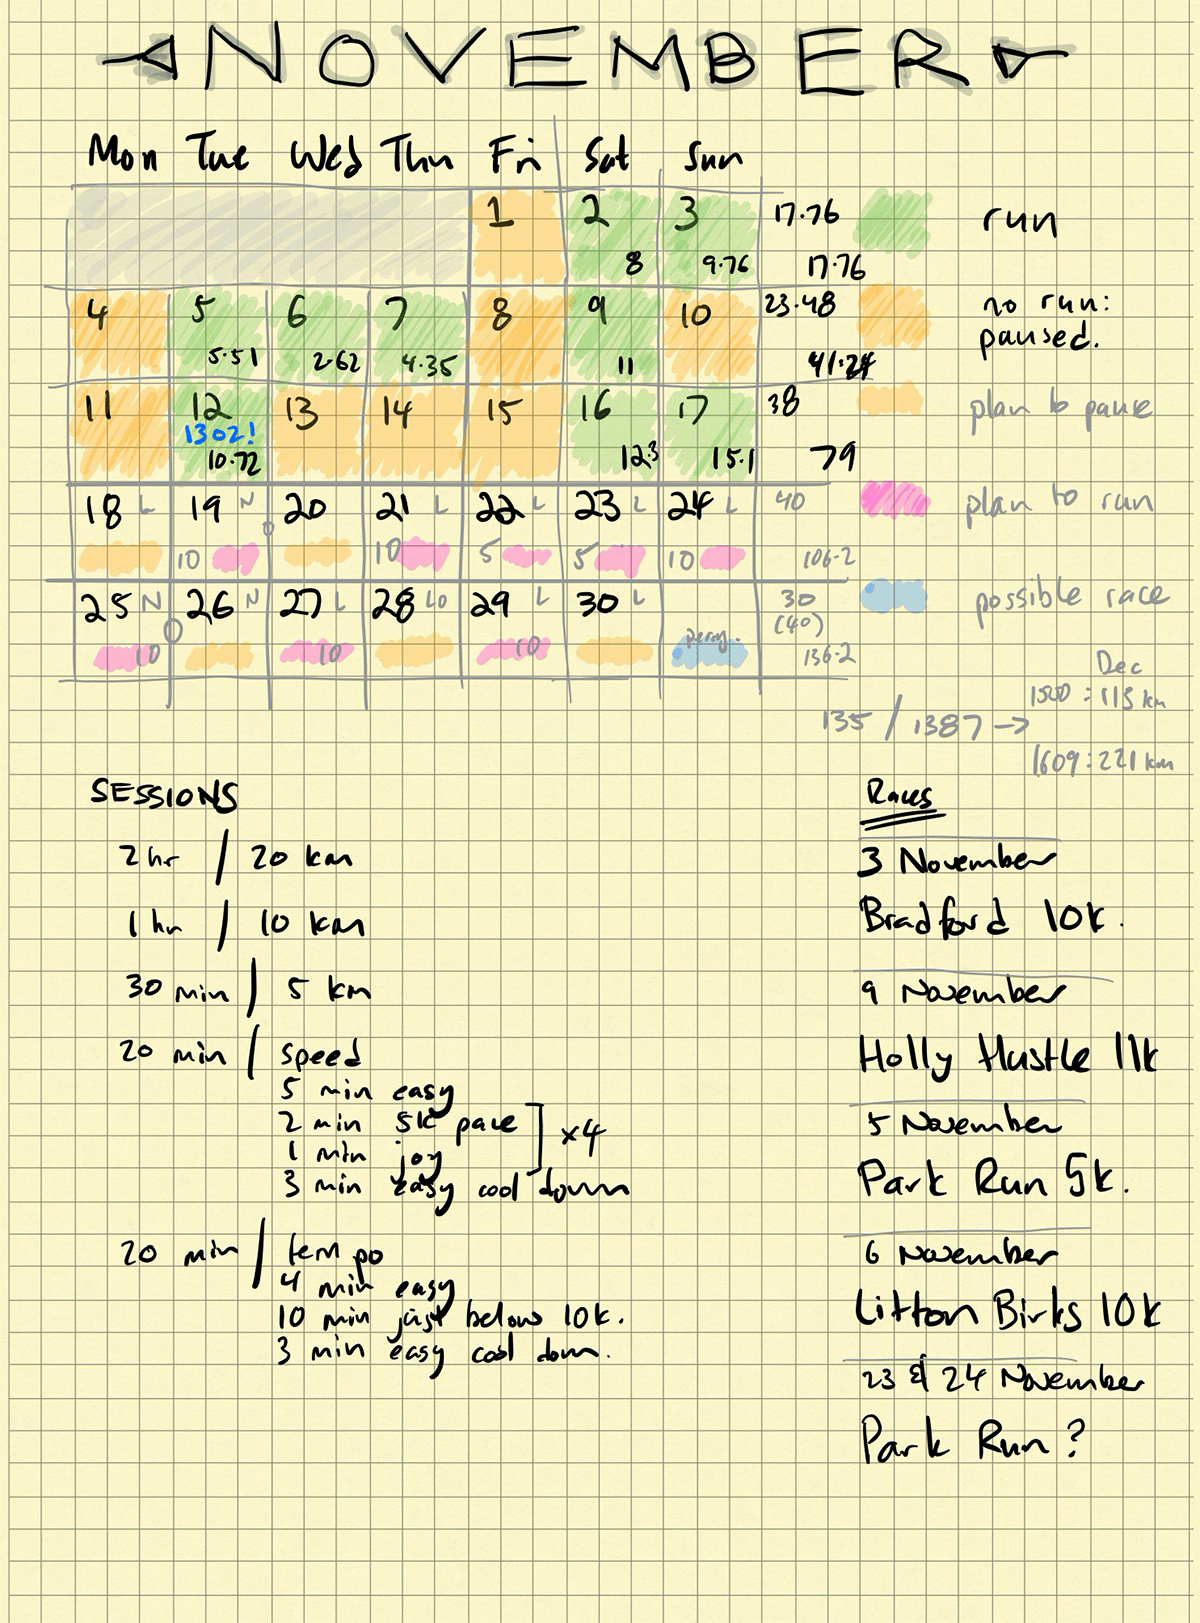 NOVEMBER
Mon Tue Wed Thu Fri Sat Sun
1 2 3 17.76
8 9.76 17.76
4 5 6 7 8 9 10 23.48
5.51 2.62 4.35 11 41.24
11 12 13 14 15 16 17 38
1302!
10.72 12.3 15.1 79
18 L 19 N 20 21 L 22 L 23 L 24 L 40
10 10 5 5 10 106.2
25 N 26 N 27 L 28 Lo 29 L 30 L 30
(40)
10 10 10 136.2
run
no run:
paused.
plan to pause
plan to run
possible race
Dec
1500 : 113 km
135 / 1387 →
1609 : 221 km
SESSIONS
2 hr / 20 km
1 hr / 10 km
30 min / 5 km
20 min / speed
5 min easy
2 min 5k pace
1 min joy
x4
3 min easy cool down
20 min / tempo
4 min easy
10 min just below 10k.
3 min easy cool down.
Races
3 November
Bradford 10k.
9 November
Holly Hustle 11k
5 November
Park Run 5k.
6 November
Litton Birks 10k
23 & 24 November
Park Run?